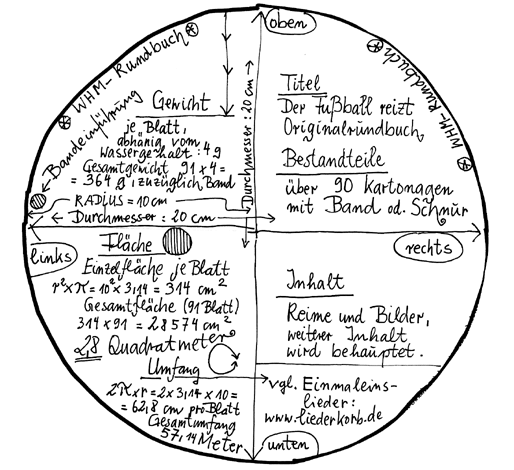 WHM-Rundbuch
WHM-Rundbuch
oben
Bandeinführung
Gewicht
je Blatt,
abhänig vom
Wassergehalt: 4g
Gesamtgewicht 91x4=
=364g, zuzüglich Band
RADIUS=10cm
Durchmesser: 20cm
Durchmesser: 20cm
Titel
Der Fußball reizt
Originalrundbuch
Bestandteile
über 90 Kartonagen
mit Band od. Schnur
links
rechts
Fläche
Einzelfläche je Blatt
r²xπ=10²x3,14=314cm²
Gesamtfläche (91Blatt)
314x91=28574cm²
2,8 Quadratmeter
Umfang
2πxr=2x3,14x10=
=62,8cm pro Blatt
Gesamtumfang
57,14Meter
Inhalt
Reime und Bilder,
weiterer Inhalt
wird behauptet.
vgl. Einmaleins-
lieder:
www.liederkorb.de
unten